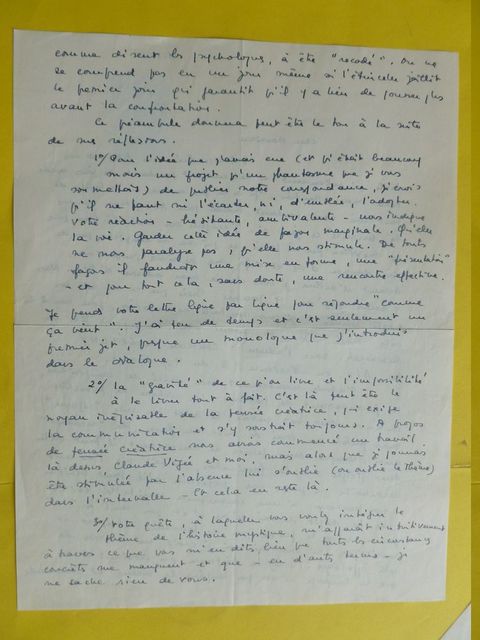 comme disent les psychologues, à être "recodé". On ne
se comprend pas en un jour même si l'étincelle jaillit
le premier jour qui garantit qu'il y a lieu de pousser plus
avant la confrontation.
Ce préambule donnera peut être le ton à la suite
de mes réflexions.
1°/ Pour l'idée que j'avais eue (et qui était beaucoup
moins un projet qu'un phantasme que je vous
soumettais) de publier notre correspondance, je crois
qu'il ne faut ni l'écarter, ni, d'emblée, l'adopter.
Votre réaction - hésitante, ambivalente - nous indique
la voie. Garder cette idée de façon marginale. Qu'elle
ne nous paralyse pas, qu'elle nous stimule. De toute
façon il faudrait une mise en forme, une "présentation"
- et pour tout cela, sans doute, une rencontre effective.
Je prends votre lettre ligne par ligne pour répondre "comme
ça vient". J'ai peu de temps et c'est seulement un
premier jet, presque un monologue que j'introduis
dans le dialogue.
2°/ La "gravité" de ce qu'on livre et l'impossibilité
à le livrer tout à fait. C'est là peut être le
noyau inépuisable de la pensée créatrice, qui exige
la communication et s'y soustrait toujours. A propos
de pensée créatrice nous avons commencé un travail
là dessus, Claude Vigée et moi, mais alors que je pourrais
être stimulée par l'absence lui s'oublie (ou oublie le thème)
dans l'intervalle - Et cela en reste là.
3°/ Votre quête, à laquelle vous voulez intégrer le
thème de l'histoire mystique, m'apparaît intuitivement
à travers ce que vous m'en dites bien que toutes les circonstances
concrètes me manquent et que - en d'autres termes - je
ne sache rien de vous.